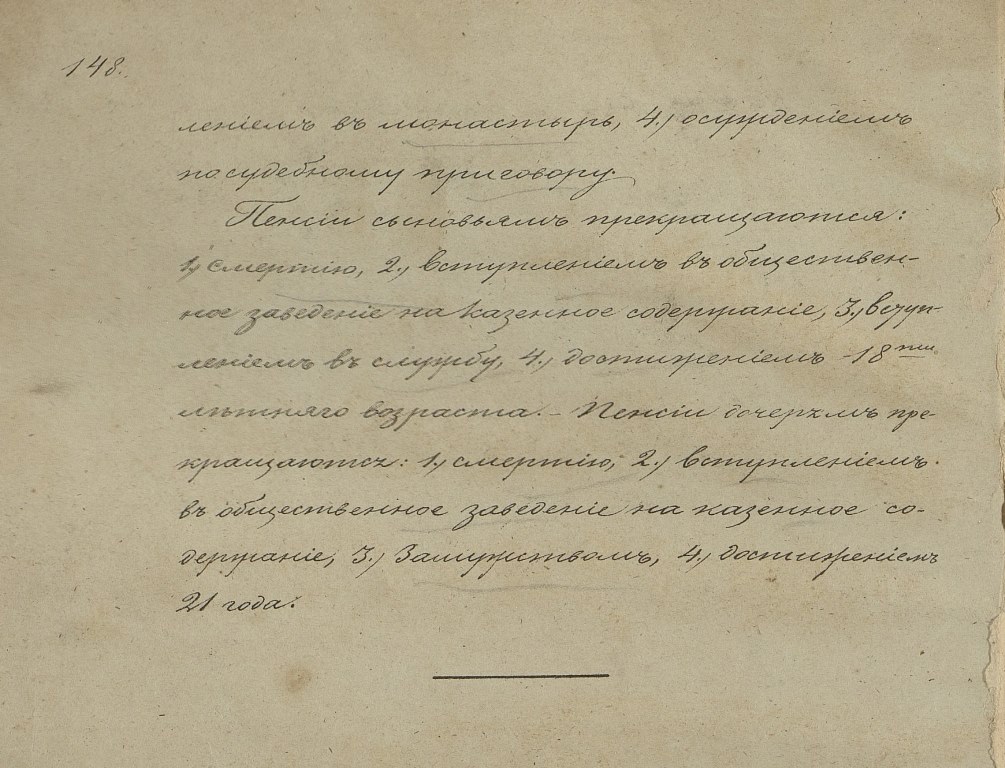 148.
леніемъ въ монастырь, 4.) осужденіемъ
по судебному приговору.
Пенсіи сыновьямъ прекращаются:
1.) смертію, 2.) вступленіемъ въ обществен-
ное заведеніе на казенное содержаніе, 3.) вступ-
леніемъ въ службу, 4.) достиженіемъ 18ти
лѣтняго возраста. - Пенсіи дочерямъ пре-
кращаются: 1.) смертію, 2.) вступленіемъ
въ общественное заведеніе на казенное со-
держаніе, 3.) Замужствомъ, 4.) достиженіемъ
21 года.